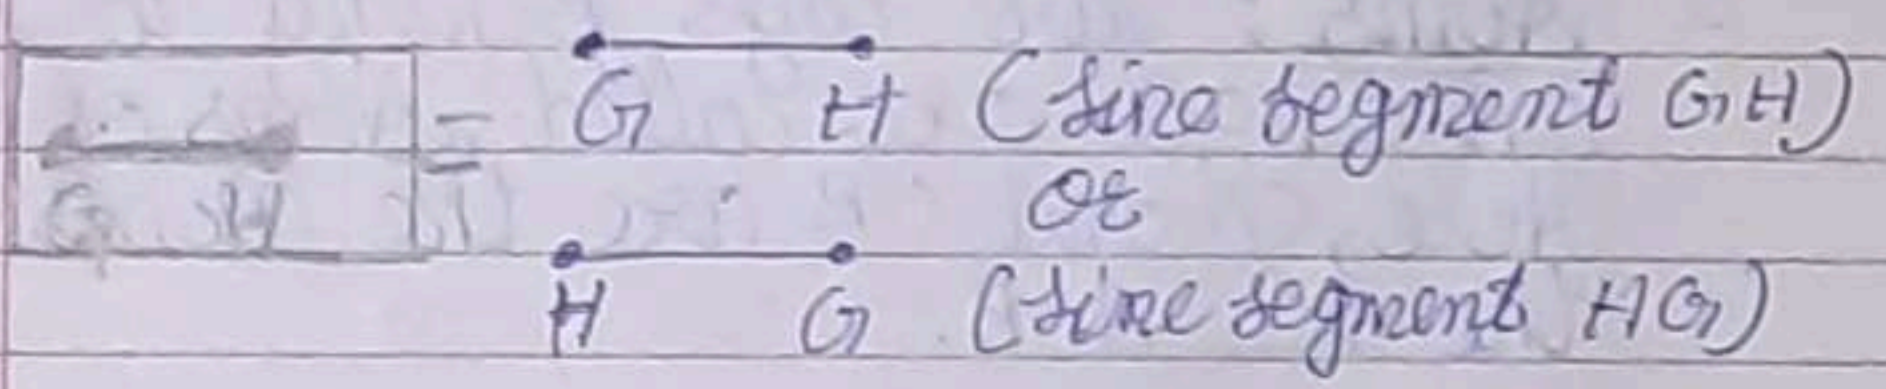 G H (Line segment GH)
G H =
or
H G (Line segment HG)